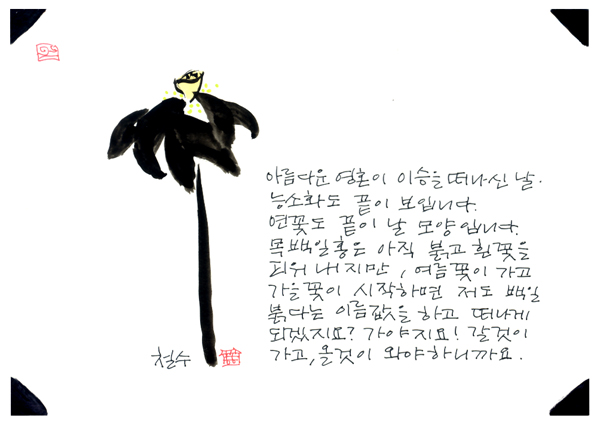 아름다운 영혼이 이승을 떠나신 날.
능소화도 끝이 보입니다.
연꽃도 끝이 날 모양입니다.
목백일홍은 아직 붉고 흰꽃을
피워 내지만, 여름꽃이 가고
가을꽃이 시작하면 저도 백일
붉다는 이름값을 하고 떠나게
되겠지요? 가야지요! 갈것이
가고, 올것이 와야하니까요.
철수